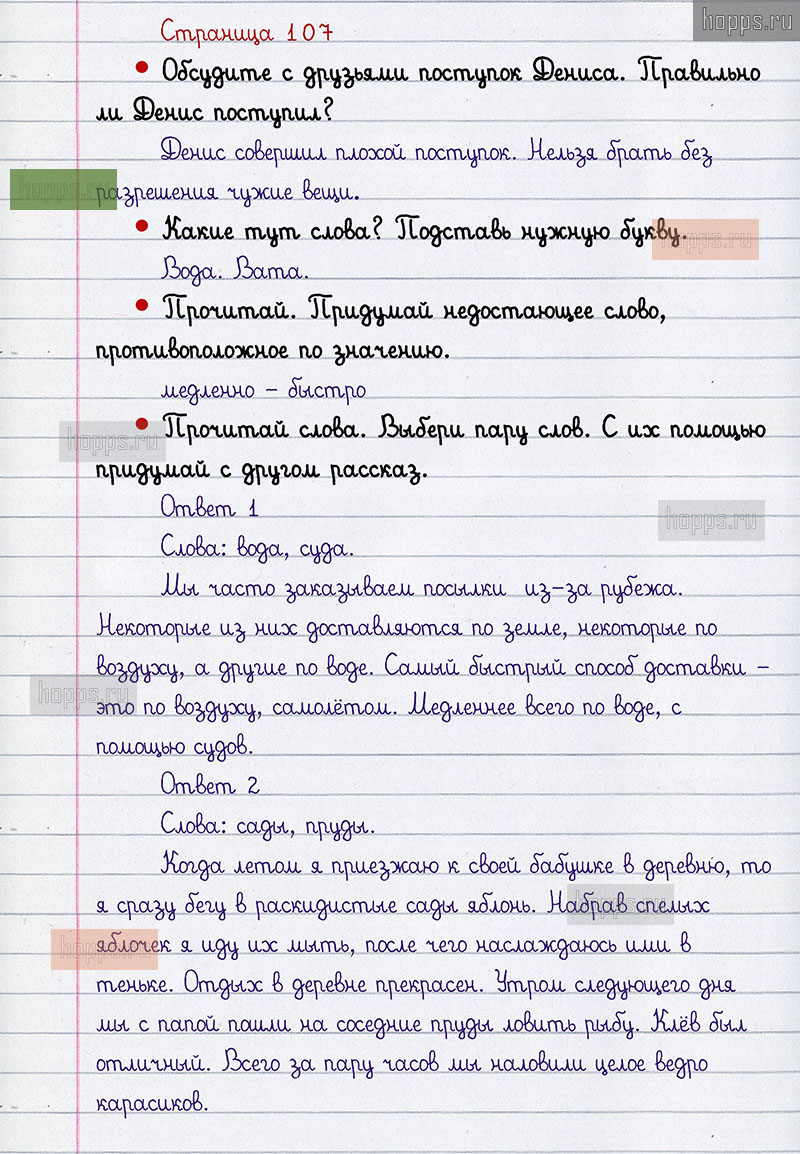 hopps.ru
Страница 107
• Обсудите с друзьями поступок Дениса. Правильно
ли Денис поступил?
Денис совершил плохой поступок. Нельзя брать без
hopps.ru
разрешения чужие вещи.
• Какие тут слова? Подставь нужную букву.
hopps.ru
Вода. Вата.
• Прочитай. Придумай недостающее слово,
противоположное по значению.
медленно – быстро
• Прочитай слова. Выбери пару слов. С их помощью
hopps.ru
придумай с другом рассказ.
Ответ 1
hopps.ru
Слова: вода, суда.
Мы часто заказываем посылки из-за рубежа.
Некоторые из них доставляются по земле, некоторые по
воздуху, а другие по воде. Самый быстрый способ доставки –
hopps.ru
это по воздуху, самолётом. Медленнее всего по воде, с
помощью судов.
Ответ 2
Слова: сады, пруды.
Когда летом я приезжаю к своей бабушке в деревню, то
я сразу бегу в раскидистые сады яблонь. Набрав спелых
hopps.ru
яблочек я иду их мыть, после чего наслаждаюсь ими в
hopps.ru
теньке. Отдых в деревне прекрасен. Утром следующего дня
мы с папой пошли на соседние пруды ловить рыбу. Клёв был
отличный. Всего за пару часов мы наловили целое ведро
карасиков.